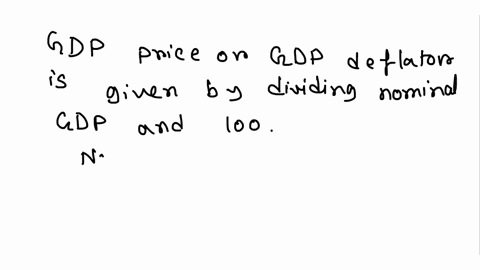 GDP price on GDP deflator
is given by dividing nominal
GDP and 100.
N.